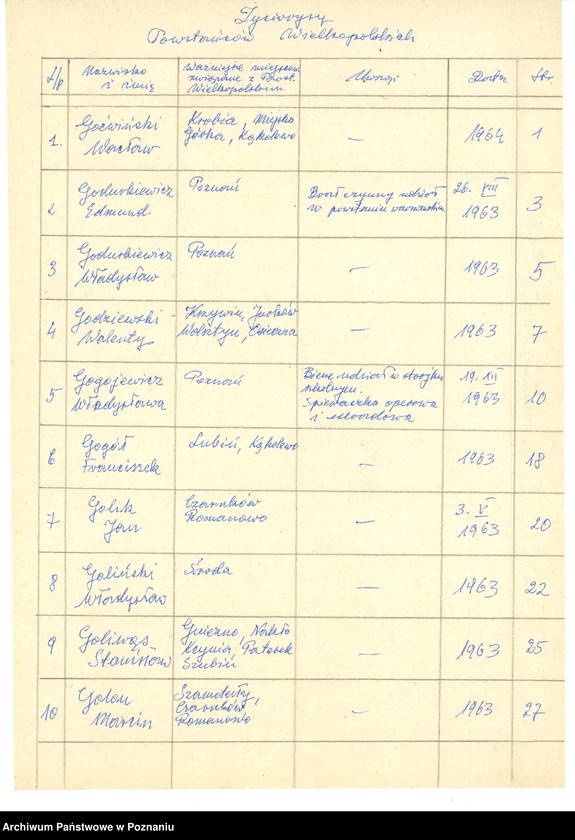 Życiorysy
Powstańców Wielkopolskich
L/p
Nazwisko
i imię
Ważniejsze miejscow.
związane z Powst.
Wielkopolskim
Uwagi
Data
Str.
1.
Goćwiński
Wacław
Krobia, Miejska
Górka, Kąkolewo
—
1964
1
2
Godurkiewicz
Edmund
Poznań
Brał czynny udział
w powstaniu warszawskim
26. VIII
1963
3
3
Godurkiewicz
Władysław
Poznań
—
1963
5
4
Godziewski
Walenty
Krzywiń,
Wolsztyn, Osieczna
—
1963
7
5
Gogojewicz
Władysława
Poznań
Bierze udział w strajku
szkolnym.
Śpiewaczka operowa
i estradowa
19. XII
1963
10
6
Gogół
Franciszek
Lubiń, Kąkolewo
—
1963
18
7
Golik
Jan
Czarnków
Romanowo
—
3. V
1963
20
8
Goliński
Władysław
Środa
—
1963
22
9
Goliwąs
Stanisław
Gniezno, Nakło
Kcynia, Paterek
Szubin
—
1963
25
10
Golon
Marcin
Szamotuły,
Czarnków,
Romanowo
—
1963
27
Archiwum Państwowe w Poznaniu